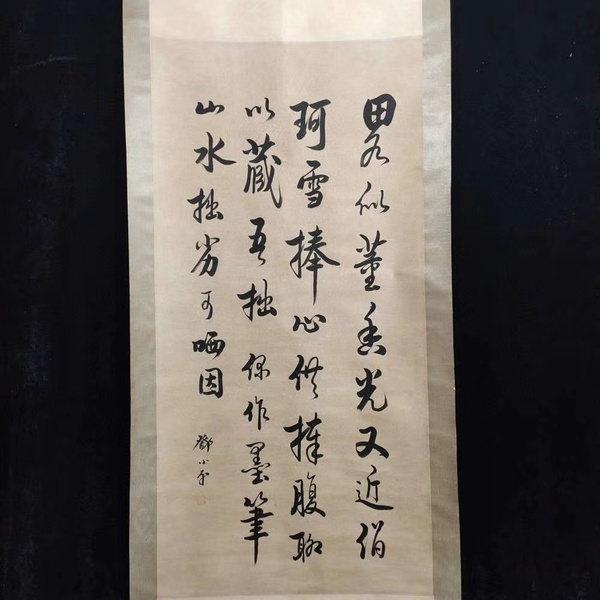 畧似董香光又近俏
珂雪捧心供捧腹聊
以藏吾拙作墨筆
山水拙劣可哂因
鄧小平